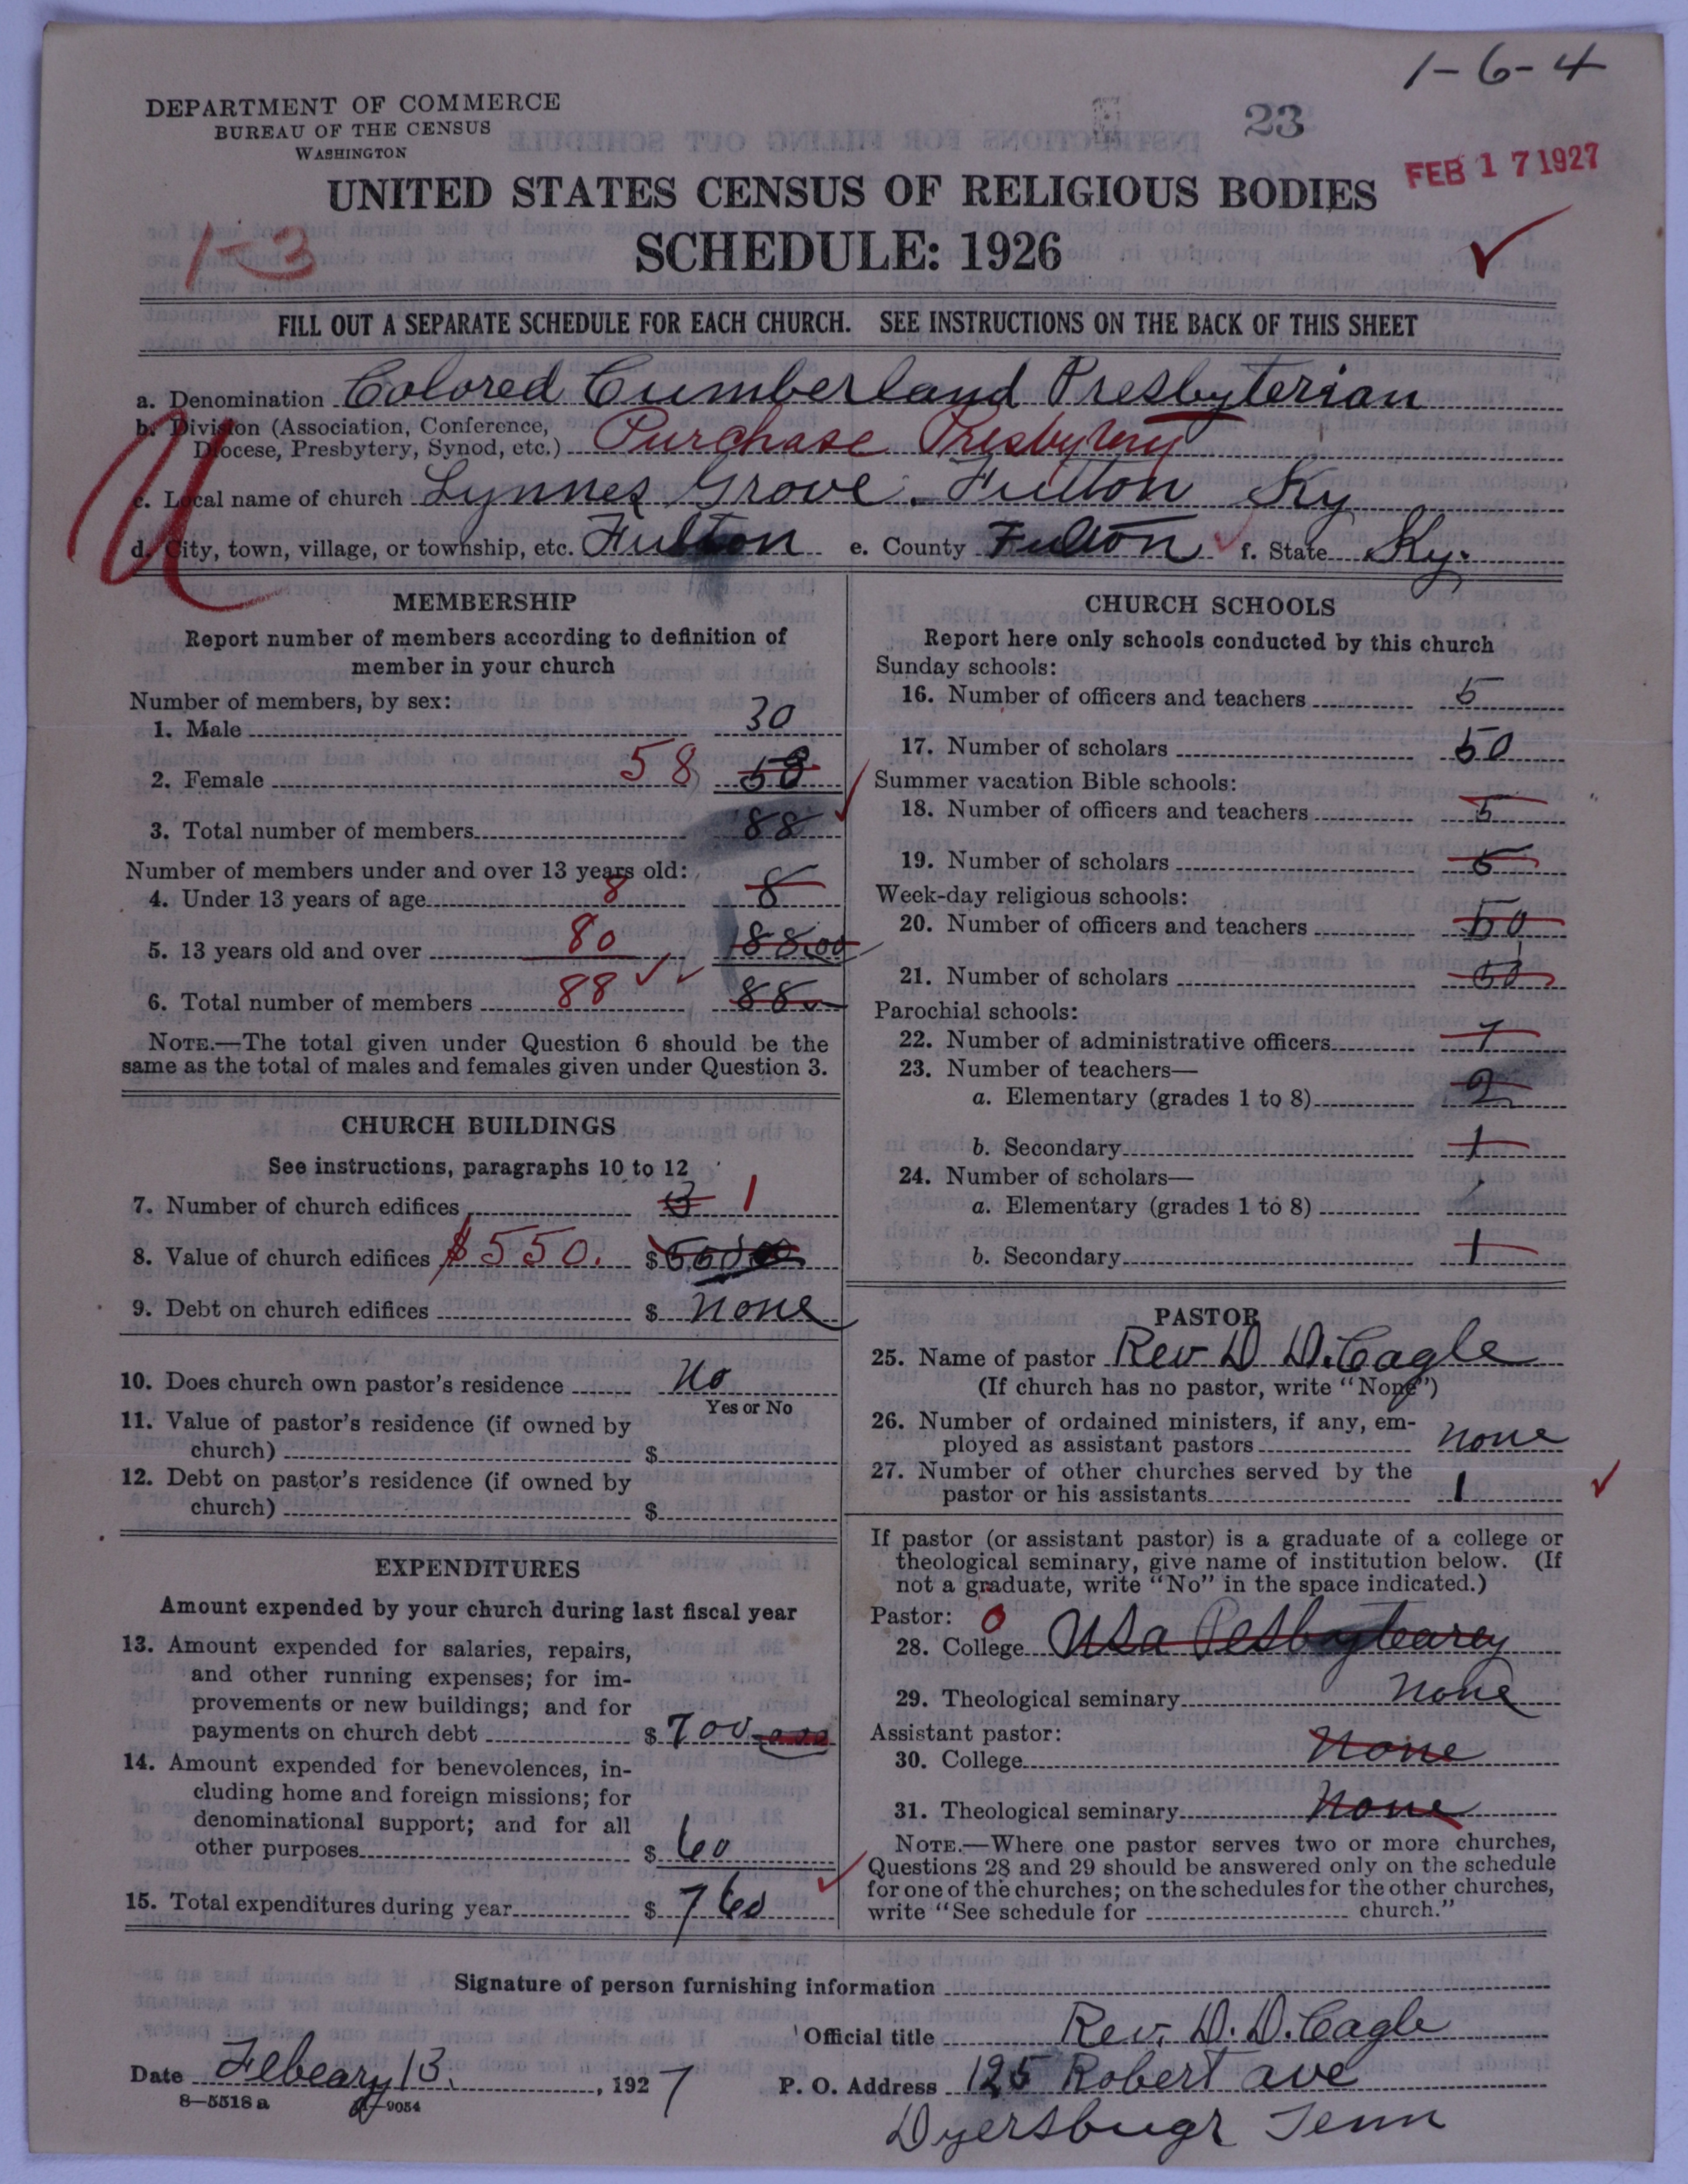 1-6-4
DEPARTMENT OF COMMERCE
BUREAU OF THE CENSUS
WASHINGTON
23
FEB 17 1927
UNITED STATES CENSUS OF RELIGIOUS BODIES
1-3
SCHEDULE: 1926
FILL OUT A SEPARATE SCHEDULE FOR EACH CHURCH. SEE INSTRUCTIONS ON THE BACK OF THIS SHEET
a. Denomination Colored Cumberland Presbyterian
b. Division (Association, Conference,
Diocese, Presbytery, Synod, etc.) Purchase Presbytery
c. Local name of church Lynnes Grove. Fulton Ky
d. City, town, village, or township, etc. Fulton e. County Fulton f. State Ky.
MEMBERSHIP
Report number of members according to definition of
member in your church
Number of members, by sex:
1. Male 30
2. Female 58 58
3. Total number of members 88
Number of members under and over 13 years old:
4. Under 13 years of age 8 8
5. 13 years old and over 80 88.00
6. Total number of members 88 88
NOTE.—The total given under Question 6 should be the
same as the total of males and females given under Question 3.
CHURCH BUILDINGS
See instructions, paragraphs 10 to 12
7. Number of church edifices 3 1
8. Value of church edifices $550. $
9. Debt on church edifices $ none
10. Does church own pastor's residence No
Yes or No
11. Value of pastor's residence (if owned by
church) $
12. Debt on pastor's residence (if owned by
church) $
EXPENDITURES
Amount expended by your church during last fiscal year
13. Amount expended for salaries, repairs,
and other running expenses; for im-
provements or new buildings; and for
payments on church debt $ 700
14. Amount expended for benevolences, in-
cluding home and foreign missions; for
denominational support; and for all
other purposes $ 60
15. Total expenditures during year $ 760
CHURCH SCHOOLS
Report here only schools conducted by this church
Sunday schools:
16. Number of officers and teachers 5
17. Number of scholars 50
Summer vacation Bible schools:
18. Number of officers and teachers 5
19. Number of scholars 5
Week-day religious schools:
20. Number of officers and teachers 50
21. Number of scholars 50
Parochial schools:
22. Number of administrative officers 7
23. Number of teachers—
a. Elementary (grades 1 to 8) 2
b. Secondary 1
24. Number of scholars—
a. Elementary (grades 1 to 8)
b. Secondary 1
PASTOR
25. Name of pastor Rev D D. Cagle
(If church has no pastor, write "None")
26. Number of ordained ministers, if any, em-
ployed as assistant pastors none
27. Number of other churches served by the
pastor or his assistants 1
If pastor (or assistant pastor) is a graduate of a college or
theological seminary, give name of institution below. (If
not a graduate, write "No" in the space indicated.)
Pastor: 0
28. College
29. Theological seminary none
Assistant pastor:
30. College None
31. Theological seminary None
NOTE.—Where one pastor serves two or more churches,
Questions 28 and 29 should be answered only on the schedule
for one of the churches; on the schedules for the other churches,
write "See schedule for church."
Signature of person furnishing information
Official title Rev. D. D. Cagle
Date Febeary 13. , 1927 P. O. Address 125 Robert ave
8—5518 a
Dyersbugr Tenn